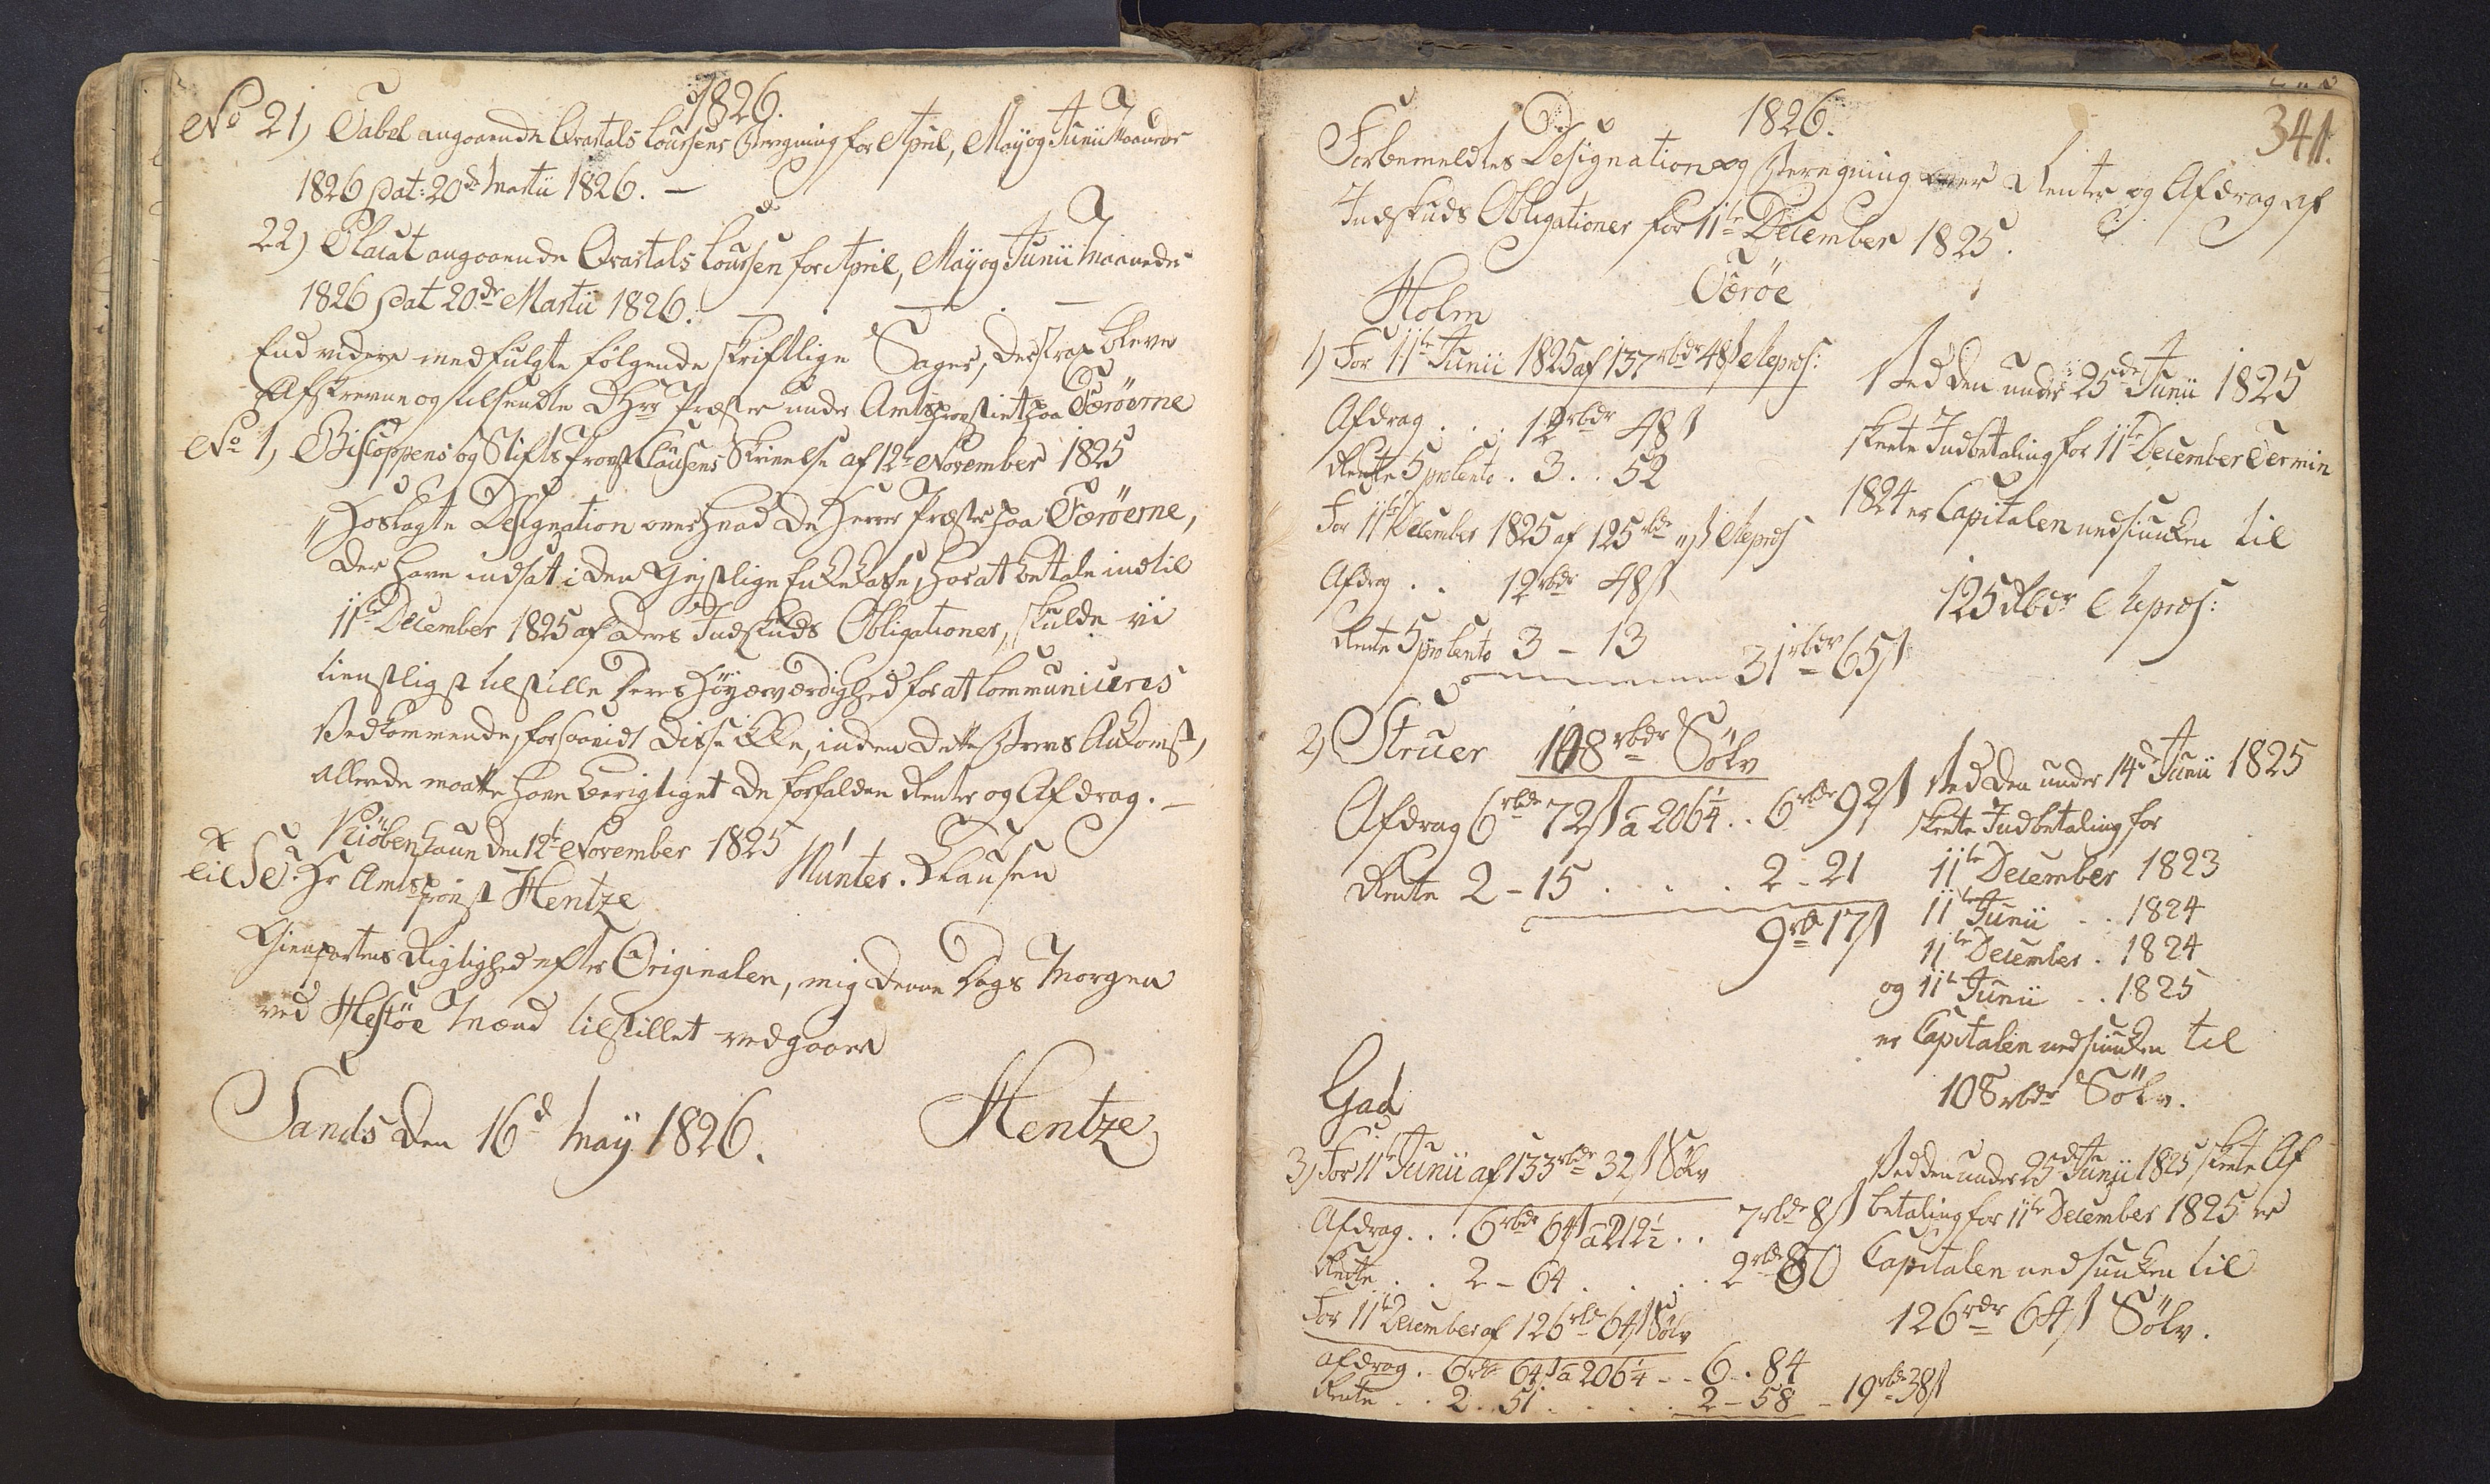 1826.
No 21) Tabel angaaende Qvartals Coursens Beregning for April, May og Junii Maaneder
1826 Dat: 20de Martii 1826. —
22) Placat angaaende Qvartals Coursen for April, May og Junii Maaneder
1826 Dat 20de Martii 1826. — . —
End videre medfulgte følgende skriftlige Sager, der strax bleve
Afskrevne og tilsendte DHrr Præster under Amtsprovstiet paa Færöerne
No 1, Biskoppens og Stiftsprovst Clausens Skrivelse af 12te November 1825
"Hoslagte Designation over hvad De Herrer Præster paa Færöerne,
der have indsat i den Gejstlige Enkekasse, har at betale indtil
11te December 1825 af Deres Indskuds Obligationer, skulde vi
tienstligst tilstille Deres Höyærværdighed for at communiceres
Vedkommende, forsaavidt Disse ikke, inden dette Brevs Ankomst,
allerede maatte have berigtiget de forfaldne Renter og Afdrag. —
Kiöbenhavn den 12te November 1825
Münter. Clausen
til S. T. Hr Amtsprovst Hentze
Gienpartens Rigtighed efter Originalen, mig denne Dags Morgen
ved Hestöe Mænd tilstillet vedgaaer
Sands den 16d May 1826. Hentze
1826.
341.
Forbemeldtes Designation og Beregning over Renter og Afdrag af
Indskuds Obligationer for 11te December 1825.
Færöe
Holm
1) For 11te Junii 1825 af 137rbdr 48s Repræs:
Afdrag . . . 12rbdr 48s
Rente 5 proCento . 3 . . 52
For 11te December 1825 af 125rbdr "s Repræs
Afdrag . . 12rbdr 48s
Rente 5 proCento 3 - 13
31rbdr 65s
Ved den under 25de Junii 1825
skeete Indbetaling for 11te December Termin
1824 er Capitalen nedsiunken til
125 Rbdr Repræs:
2) Struer 108rbdr Sölv
Afdrag 6rbdr 72s a 206¼ . . 6rbdr 92s
Rente 2 - 15 . . . . 2 - 21
9rb 17s
Ved den under 14d Junii 1825
skeete Indbetaling for
11te December 1823
11te Junii . . 1824
11te December . 1824
og 11te Junii . . 1825
er Capitalen nedsiunken til
108 rbdr Sölv.
Gad
3) For 11te Junii af 133rbdr 32s Sölv
Afdrag . . . 6rbdr 64s a 212½ . . 7rbdr 8s
Rente . . 2 - 64 . . . . 2rbdr 80
For 11te December af 126rbdr 64s Sölv
Afdrag . . 6rbdr 64s a 206¼ . . 6 . . 84
Rente . . 2 . . 51 . . . . 2 - 58 - 19rbdr 38s
Ved den under 25de Junii 1825 skeete Af
betaling for 11te December 1825 er
Capitalen nedsiunken til
126rdr 64s Sölv.